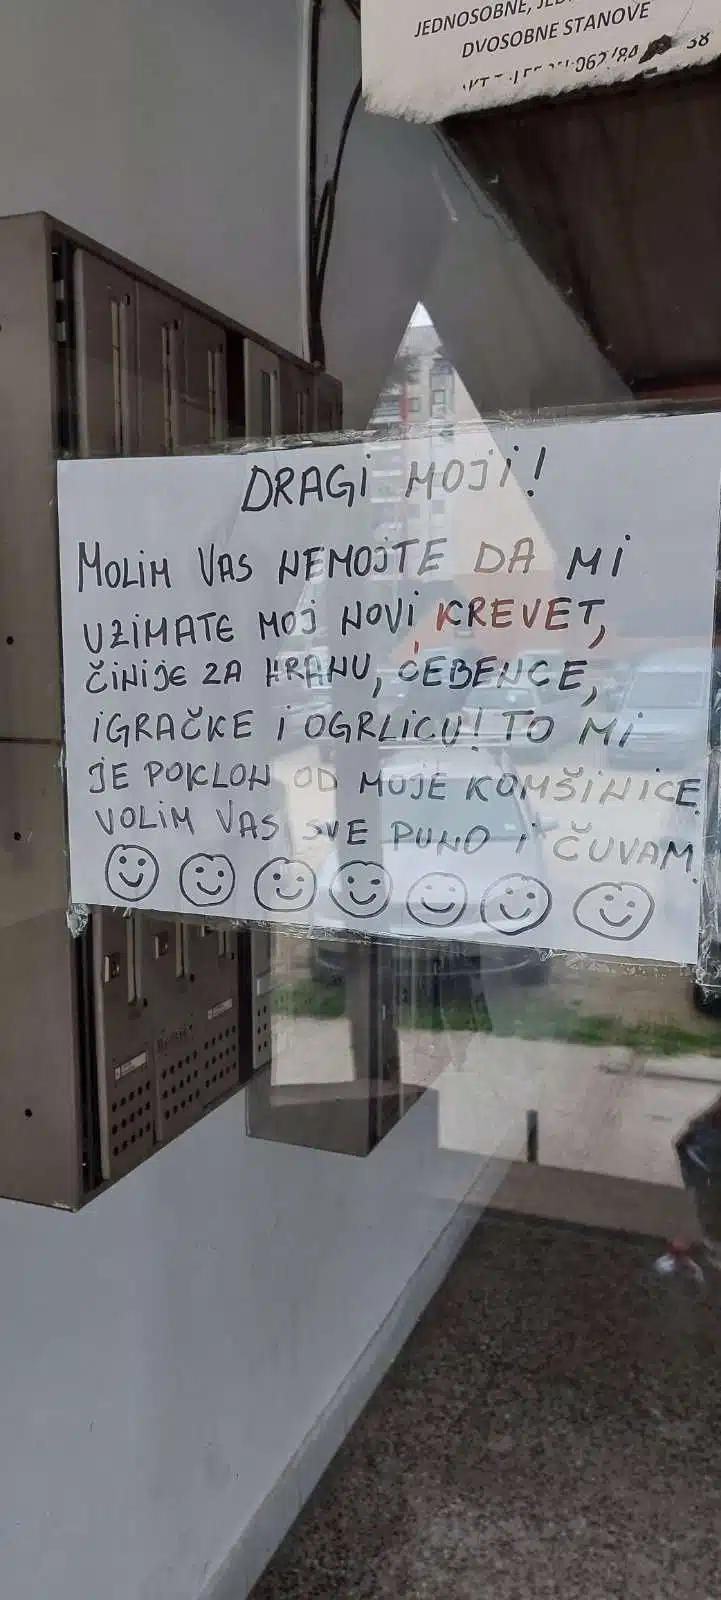 JEDNOSOBNE,
DVOSOBNE STANOVE
DRAGI MOJI!
MOLIM VAS NEMOJTE DA MI
UZIMATE MOJ NOVI KREVET,
ČINIJE ZA HRANU, ĆEBENCE,
IGRAČKE I OGRLICU! TO MI
JE POKLON OD MOJE KOMŠINICE.
VOLIM VAS SVE PUNO I ČUVAM.